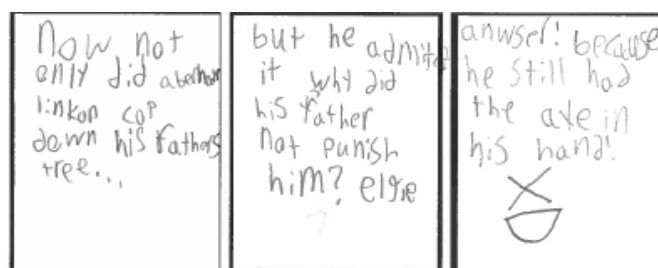 Now not
only did aberham
linkon cop
down his fathers
tree...
but he admited
it why did
his father
not punish
him? elgie
anwser! because
he still had
the axe in
his hand!